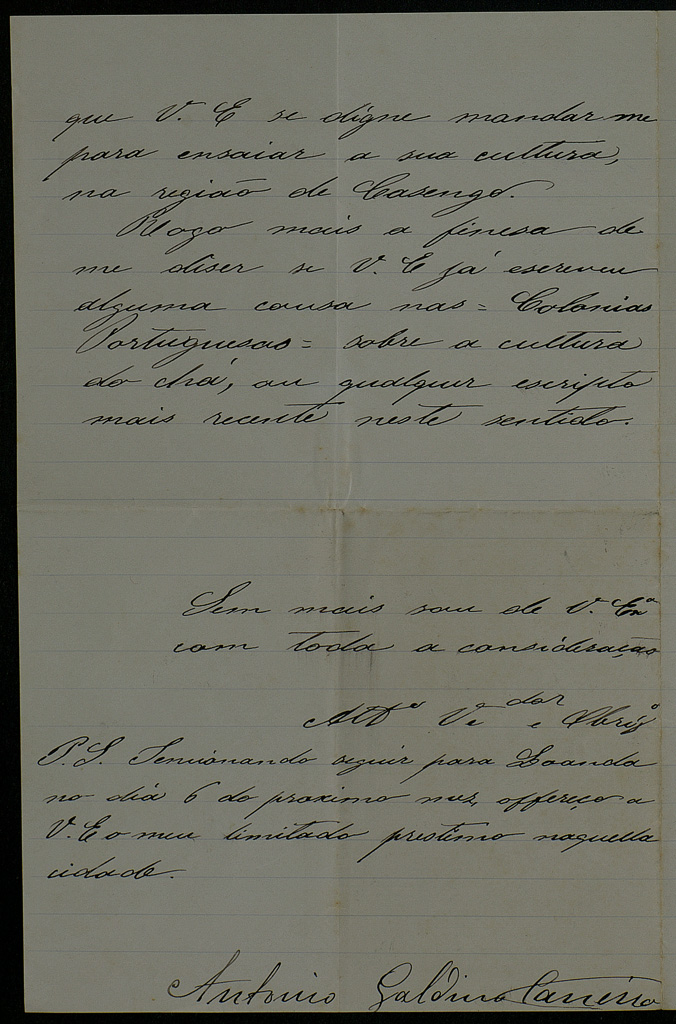 que V. E se digne mandar-me
para ensaiar a sua cultura,
na região de Casengo.
Rogo mais a finesa de
me diser se V. E já escreveu
alguma cousa nas = Colonias
Portuguesas = sobre a cultura
do chá, ou qualquer escripto
mais recente neste sentido.
Sem mais sou de V. Exª
com toda a consideração
Attº Vedor e Obrigº
P.S. Tencionando seguir para Loanda
no dia 6 do proximo mez, offereço a
V. E o meu limitado prestimo naquella
cidade.
Antonio Galdino Carneiro